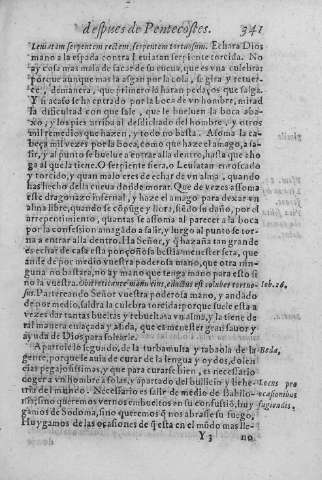 despues de Pentecostes. 341
Leuiatam serpentem rectem, serpentem tortuosum. Echara Dios
mano a la espada contra Leuiatan serpiente torcida. No
ay cosa mas mala de sacar de su cueua, que es vna culebra:
porque aunque mas la asgan por la cola, se gira y retuer-
ce, demanera, que primero la haran pedaços que salga.
Y si acaso se ha entrado por la boca de vn hombre, mirad
la dificultad con que sale, que le bueluen la boca aba-
xo, y los pies arriba al desdichado del hombre, y otros
mil remedios que hazen, y todo no basta. Assoma la ca-
beça mil vezes por la boca, como que haze el amago, a sa-
lir, y al punto se buelue a entrar alla dentro, hasta que aho
ga al que la tiene. O serpiente fiera, o Leuiatan enroscado
y torcido, y quan malo eres de echar de vn alma, quando
has hecho della cueua donde morar. Que de vezes assoma
este dragonazo infernal, y haze el amago para dexar vn
alma libre, quando se
arrepentimiento, quantas se assoma al parecer a la boca
por la confession amagado a salir, y luego al punto se tor-
na a entrar alla dentro. Ha Señor, y q̃ hazaña tan grande
es echar de casa esta ponçoñosa bestia menester sera, que
ande de por medio vuestra poderosa mano, que otra nin-
guna no bastara, no ay mano que tenga mano para esto si
no la vuestra. Obstetricante manu eius, eductus est coluber tortuo- Iob. 26.
sus. Pareciendo Señor vuestra poderosa mano, y andādo
de por medio, saldra la culebra torcida porque suele esta a
vezes dar tantas bueltas y rebueltas a vn alma, y la tiene de
tal manera enlaçada y asida, que es menester gran fauor y
ayuda de Dios para soltarle.
Apartole lo segundo, de la turbamulta y tabaola de la Beda,
gente, porque le auia de curar de la lengua y oydos, dolen
cias pegajosissimas, y que para curarse bien, es necessario
coger a vn hombre a solas, y apartado del bullicio y liche- Locus pro
tria del mundo. Necessario es salir de medio de Babilo- ocasionibus
nia, sino queremos vernos embueltos en su confusiō, huy fugiendis.
gamos de Sodoma, sino queremos q̃ nos abrase su fuego,
Huygamos de las ocasiones de q̃ esta en el mūdo mas lle-
Y 3 no